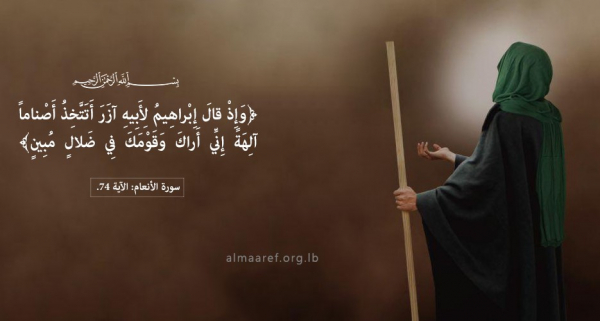 بسم الله الرحمن الرحيم
﴿وَإِذْ قالَ إِبْراهِيمُ لِأَبِيهِ آزَرَ أَتَتَّخِذُ أَصْناماً
آلِهَةً إِنِّي أَراكَ وَقَوْمَكَ فِي ضَلالٍ مُبِينٍ﴾
سورة الأنعام: الآية 74.
almaaref.org.lb